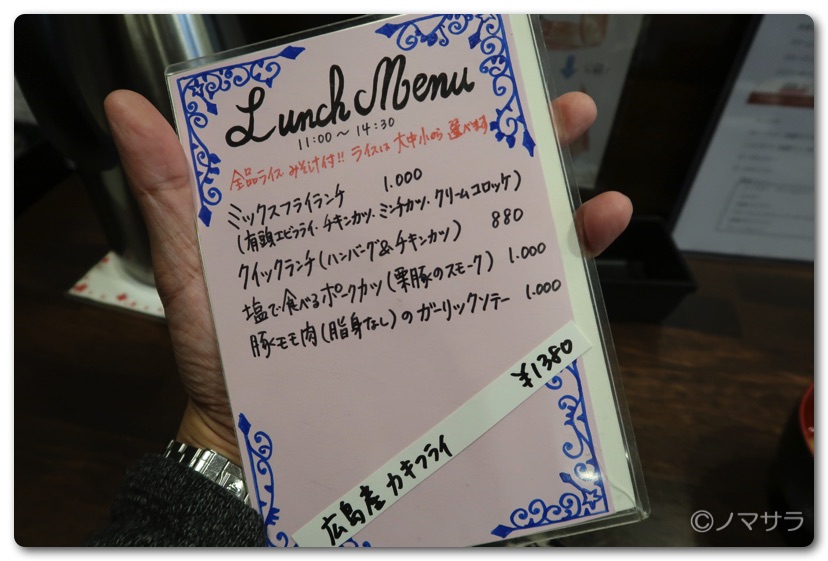 Lunch Menu
11:00〜14:30
全品ライス みそ汁付!! ライスは 大中小から 選べます
ミックスフライランチ 1.000
(有頭エビフライ・チキンカツ・ミンチカツ・クリームコロッケ)
クイックランチ(ハンバーグ&チキンカツ) 880
塩で食べるポークカツ(栗豚のスモーク) 1.000
豚モモ肉(脂身なし)のガーリックソテー 1.000
広島産 カキフライ ¥1380
©ノマサラ